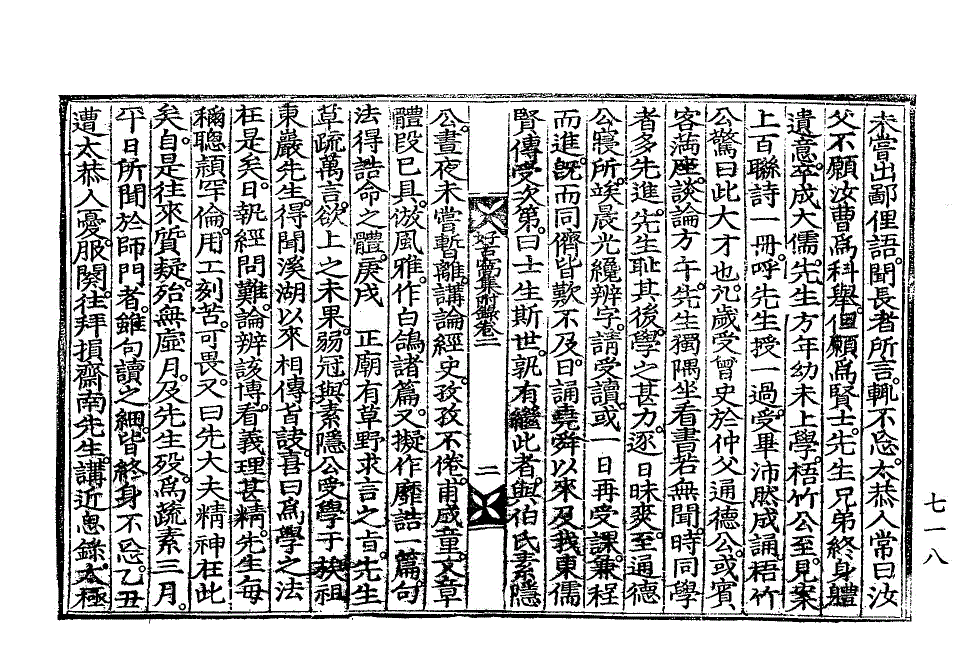 未嘗出鄙俚語聞長者所言輒不忘太恭人常曰汝
父不願汝曹爲科擧但願爲賢士先生兄弟終身體
遺意卒成大儒先生方年幼未上學梧竹公至見案
上百聯詩一冊呼先生授一過受畢沛然成誦梧竹
公驚曰此大才也九歲受曾史於仲父通德公或賓
客滿座談論方午先生獨隅坐看書若無聞時同學
者多先進先生恥其後學之甚力逐日昧爽至通德
公寢所竢晨光纔辨字請受讀或一日再受課兼程
而進旣而同儕皆歎不及日誦堯舜以來及我東儒
賢傳受次第曰士生斯世孰有繼此者與伯氏素隱
集附錄卷二 二
公晝夜未嘗暫離講論經史孜孜不倦甫成童文章
體段已具倣風雅作白鴿諸篇又擬作靡誥一篇句
法得誥命之體庚戌 正廟有草野求言之旨先生
草疏萬言欲上之未果弱冠與素隱公受學于族祖
東巖先生得聞溪湖以來相傳旨訣喜曰爲學之法
在是矣日執經問難論辨該博看義理甚精先生每
稱聰穎罕倫用工刻苦可畏又曰先大夫精神在此
矣自是往來質疑殆無虛月及先生歿爲疏素三月
平日所聞於師門者雖句讀之細皆終身不忘乙丑
遭太恭人憂服闋往拜損齋南先生講近思錄太極
七一八